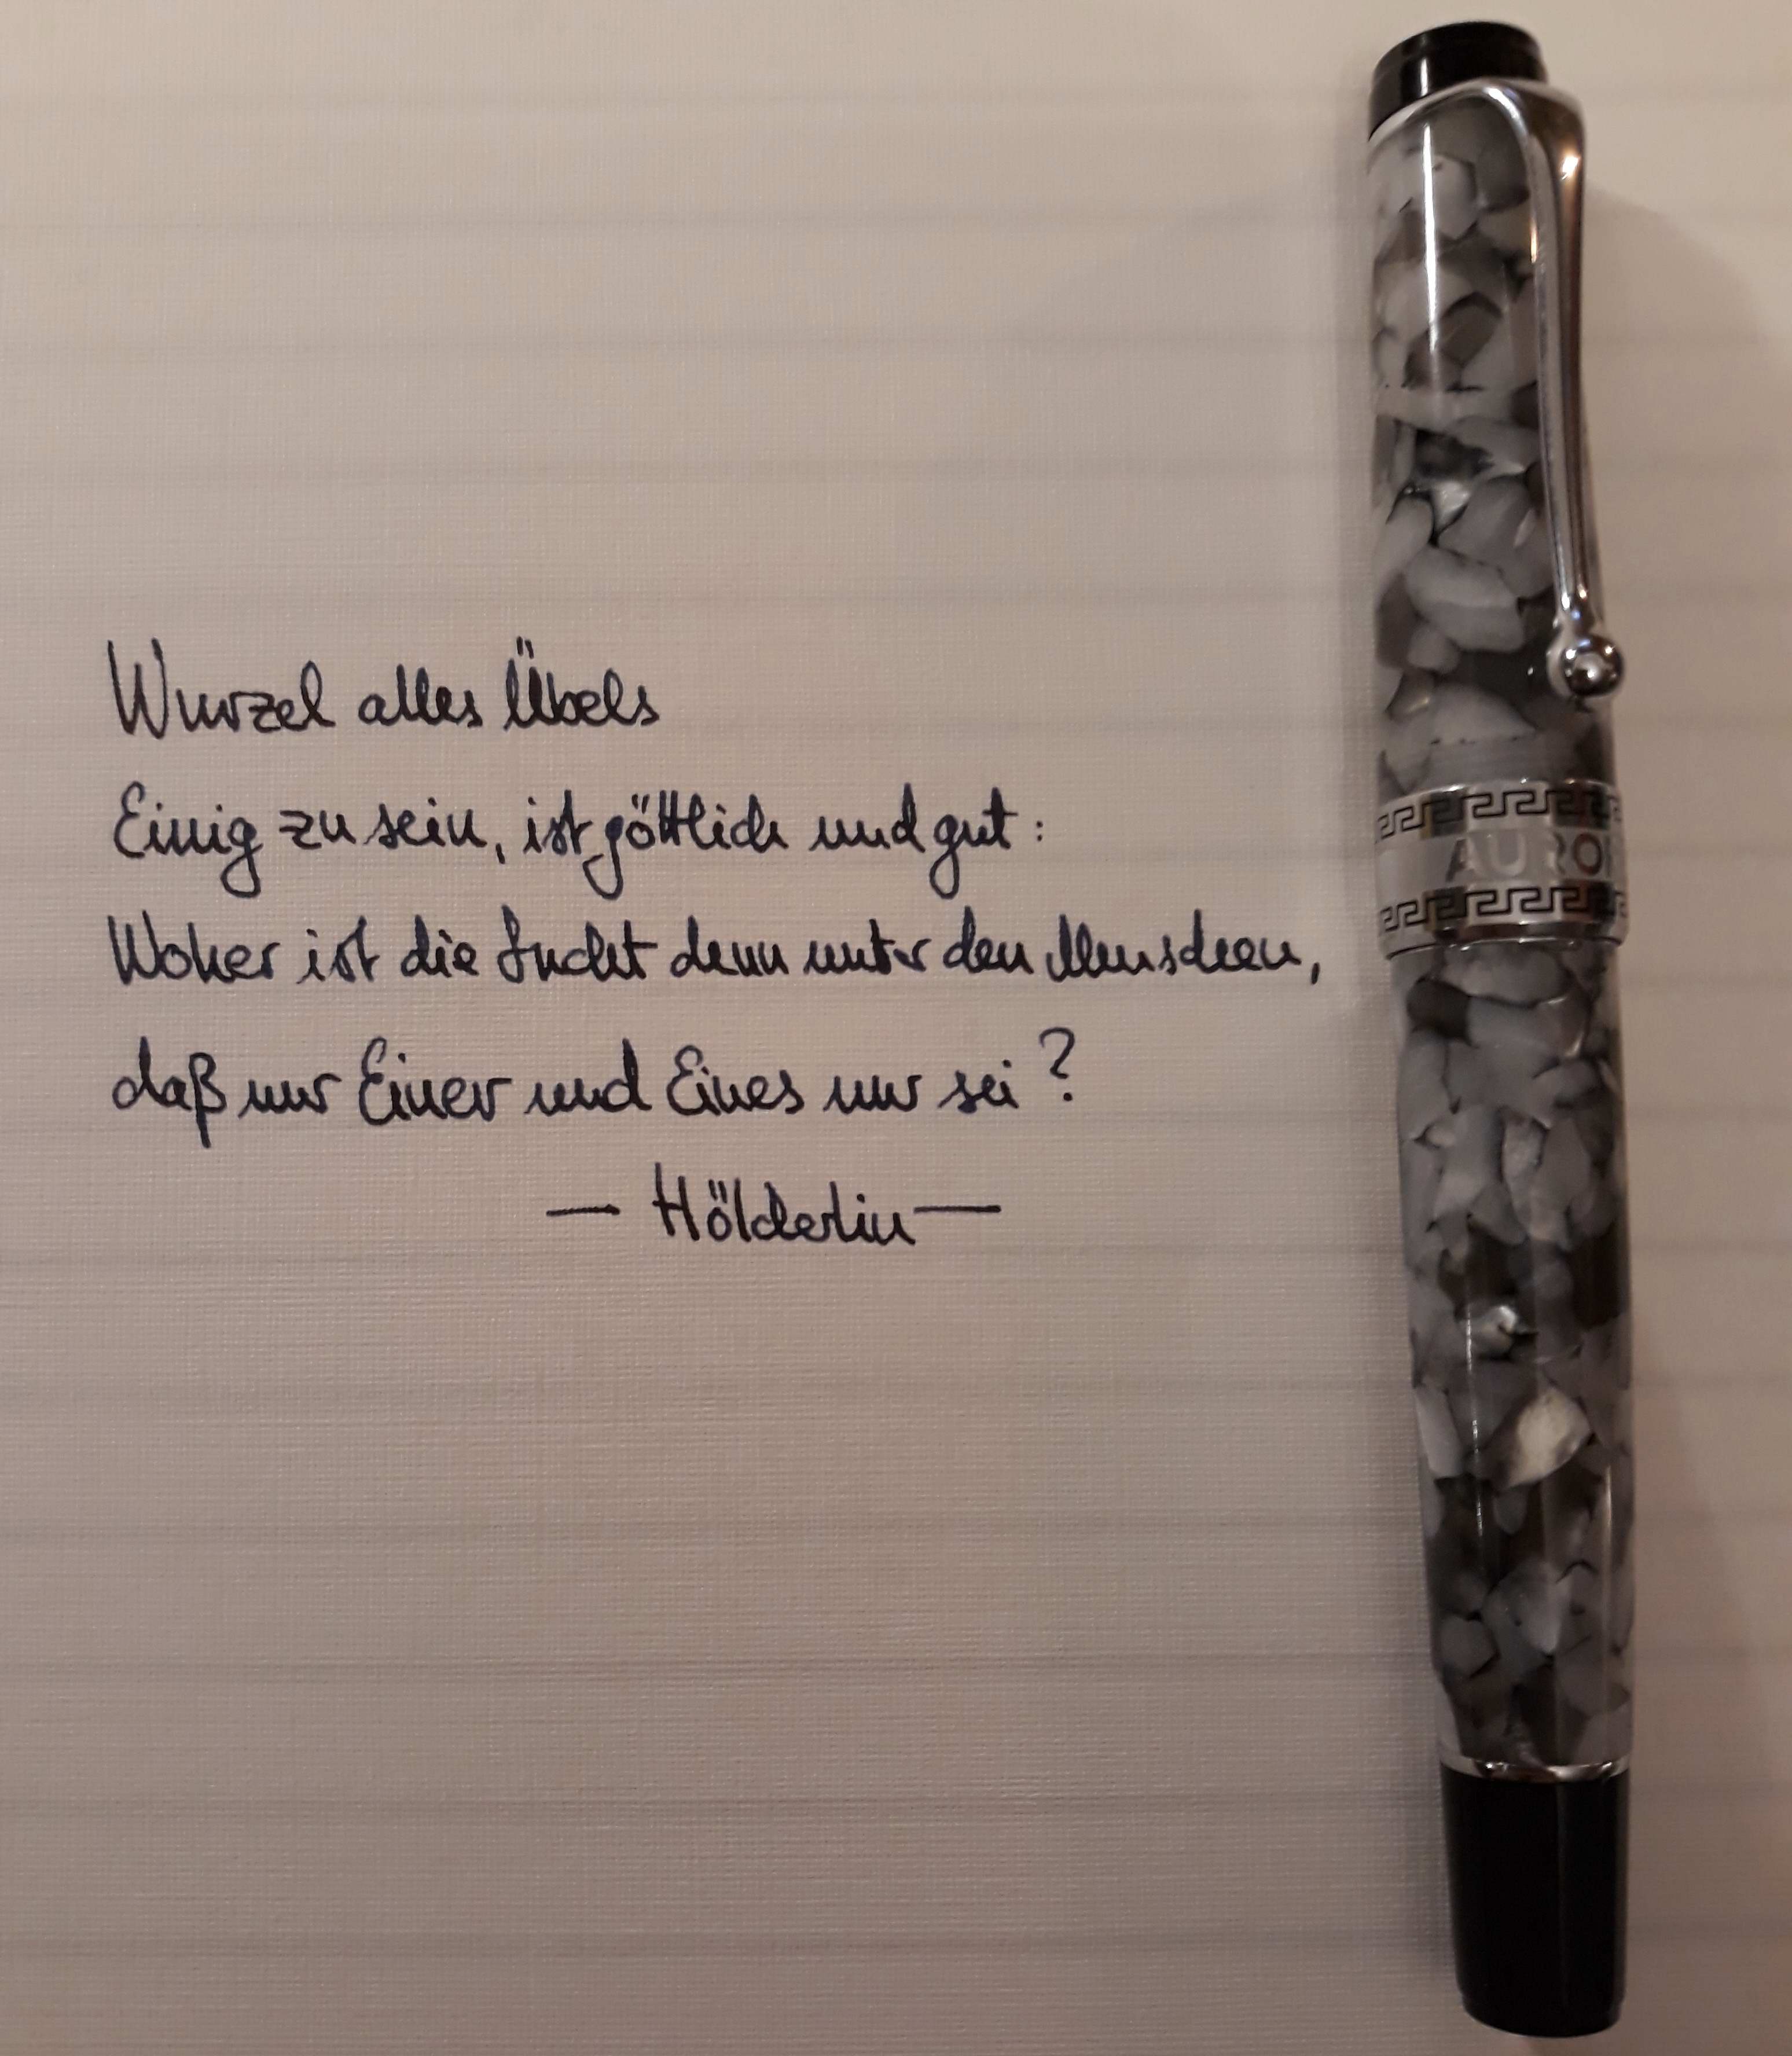 Wurzel alles Übels
Einig zu sein, ist göttlich und gut:
Woher ist die Sucht denn unter den Menschen,
daß nur Einer und Eines nur sei?
— Hölderlin —
AURO